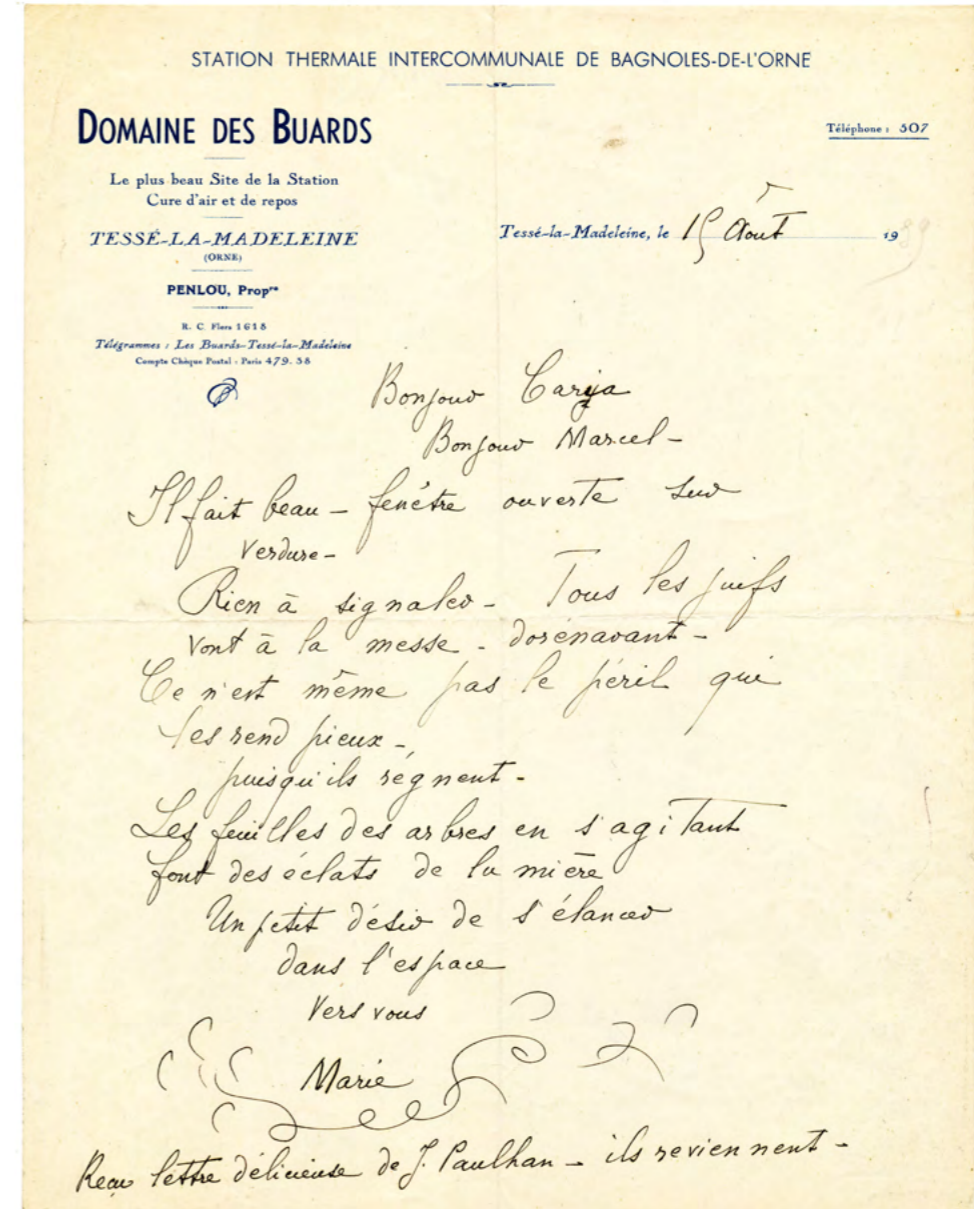 STATION THERMALE INTERCOMMUNALE DE BAGNOLES-DE-L'ORNE
DOMAINE DES BUARDS
Téléphone : 507
Le plus beau Site de la Station
Cure d'air et de repos
TESSÉ-LA-MADELEINE
(ORNE)
Tessé-la-Madeleine, le 15 Août 1939
PENLOU, Propre
R. C. Flers 1618
Télégrammes : Les Buards-Tessé-la-Madeleine
Compte Chèque Postal - Paris 479.38
Bonjour Caryа
Bonjour Marcel -
Il fait beau - fenêtre ouverte sur
verdure -
Rien à signaler - Tous les juifs
vont à la messe - dorénavant -
Ce n'est même pas le péril qui
les rend pieux -
puisqu'ils règnent -
Les feuilles des arbres en s'agitant
font des éclats de lumière
Un petit désir de s'élancer
dans l'espace
vers vous
Marie
Reçu lettre délicieuse de J. Paulhan - ils reviennent -